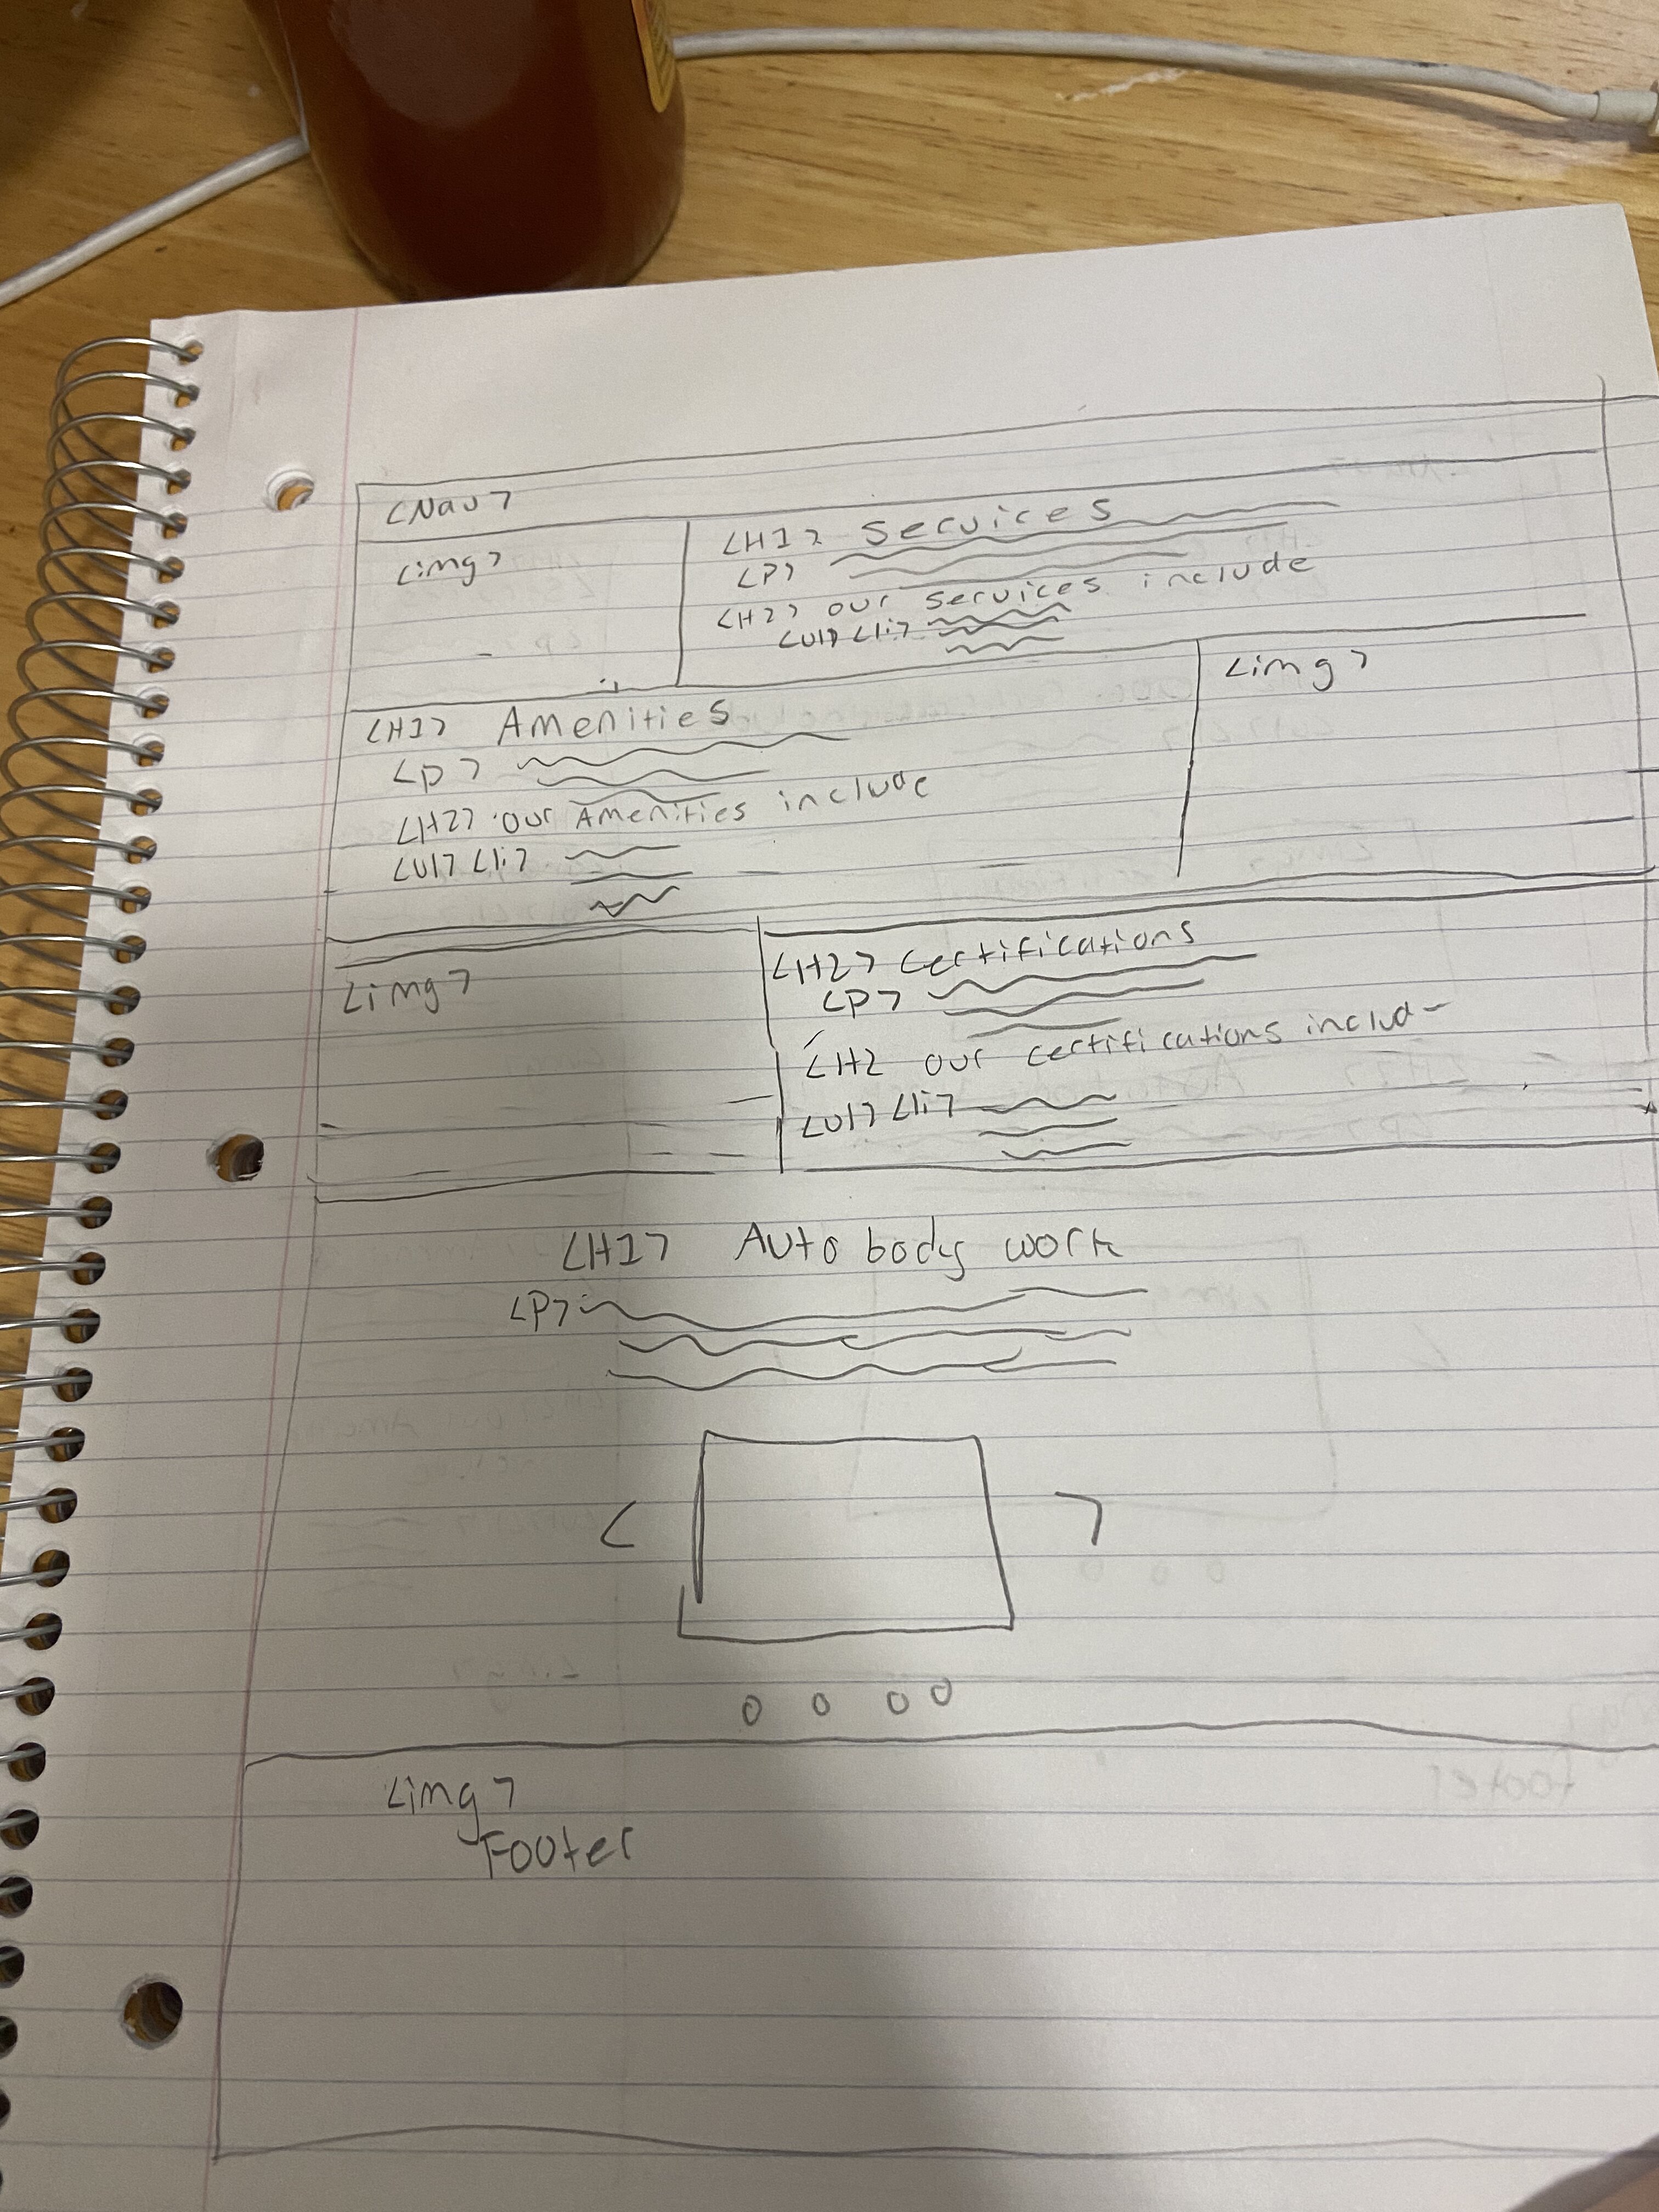 <Nav>
<img>
<H1> Services
<P>
<H2> our services include
<ul> <li>
<H1> Amenities
<p>
<H2> our Amenities include
<ul> <li>
<img>
<img>
<H2> Certifications
<P>
<H2 our certifications includ
<ul> <li>
<H1> Auto body work
<P>
< >
<img>
Footer